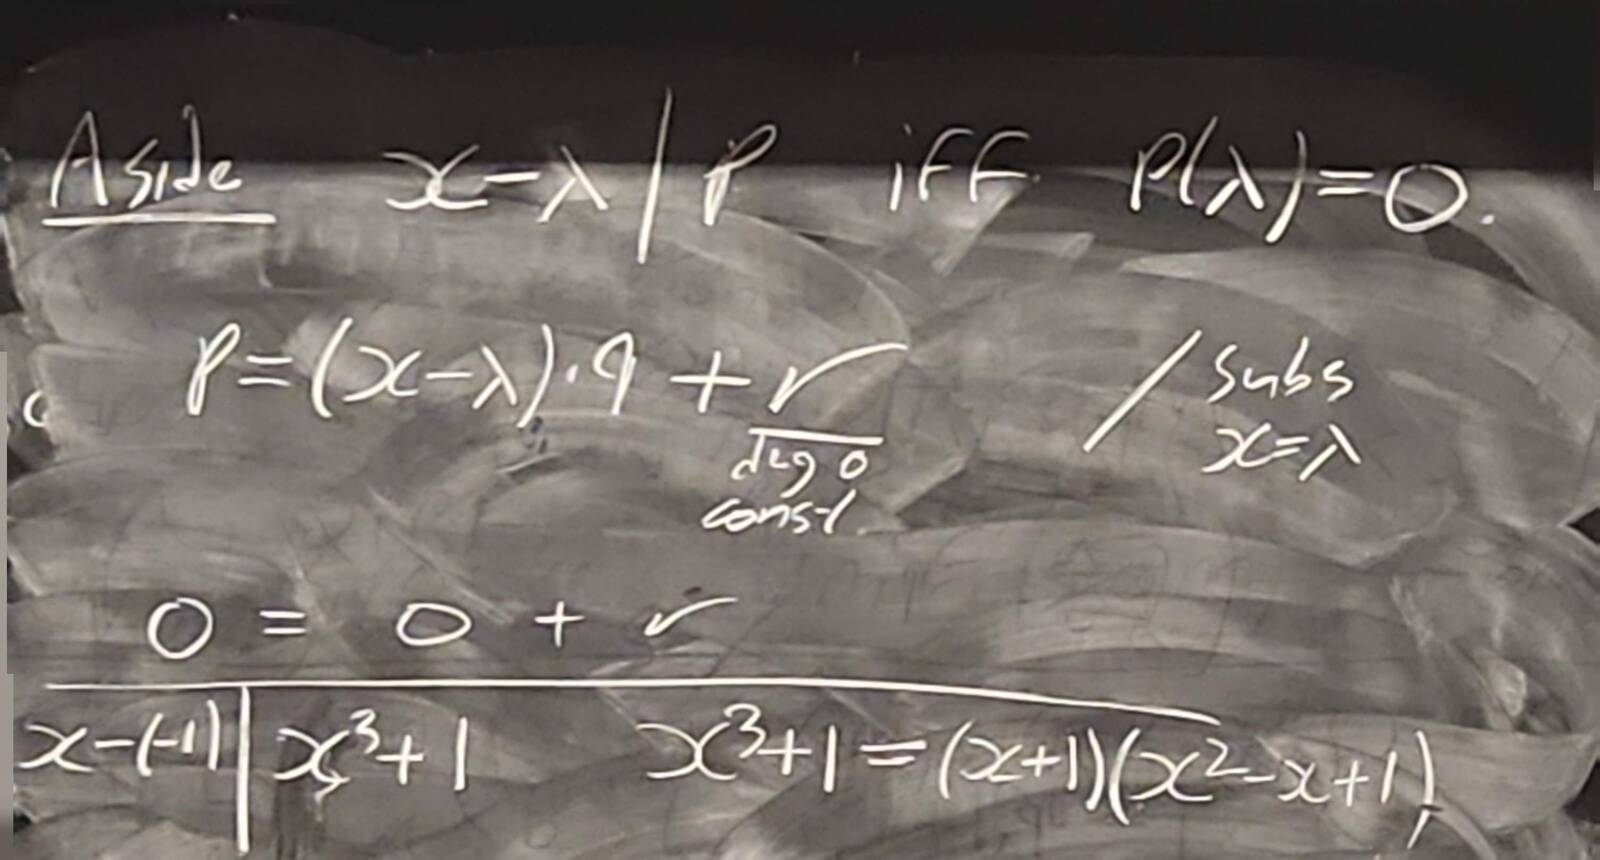 Aside x-λ | P iff P(λ)=0.
P=(x-λ)·q + r / subs
deg 0 x=λ
const
0 = 0 + r
x-(-1) | x³+1 x³+1=(x+1)(x²-x+1)